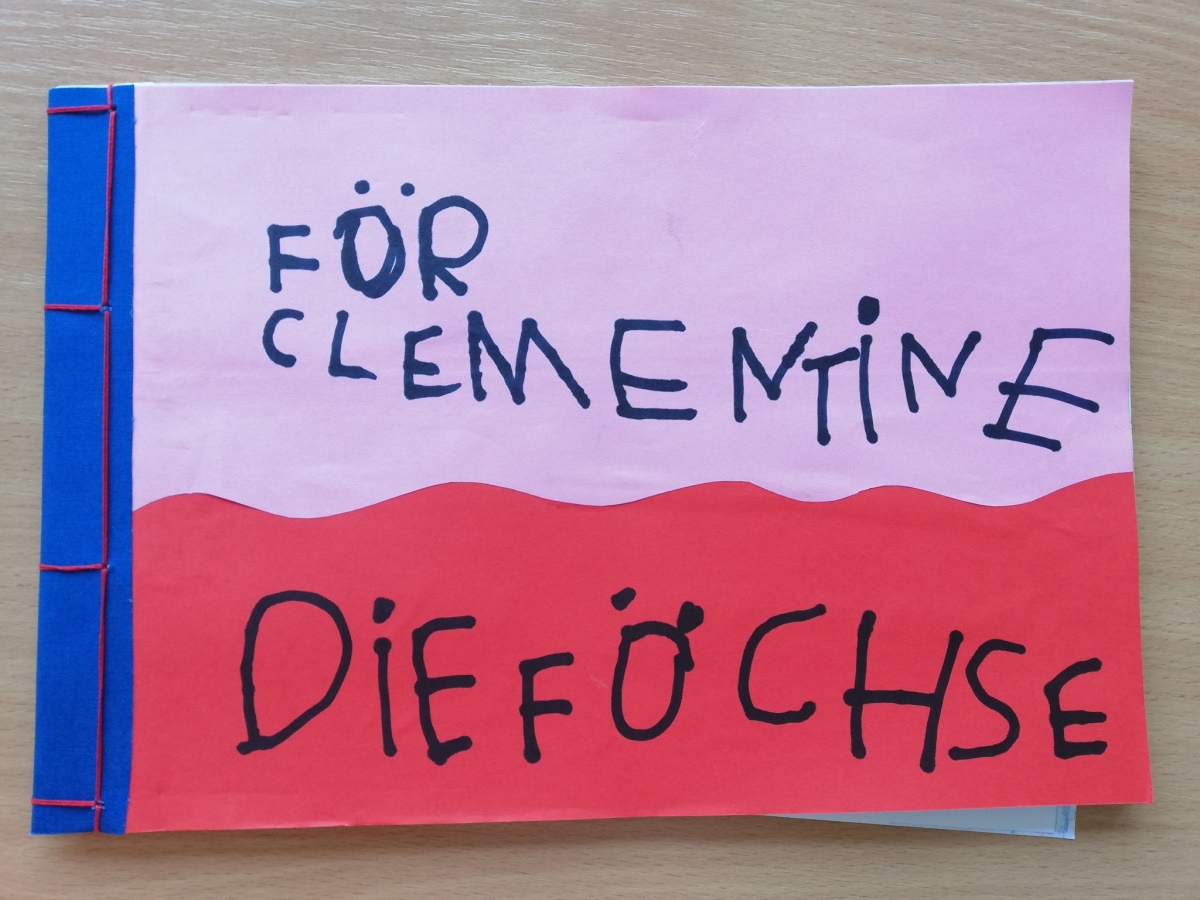 FÖR
CLEMENTiNE
DiE FÖCHSE